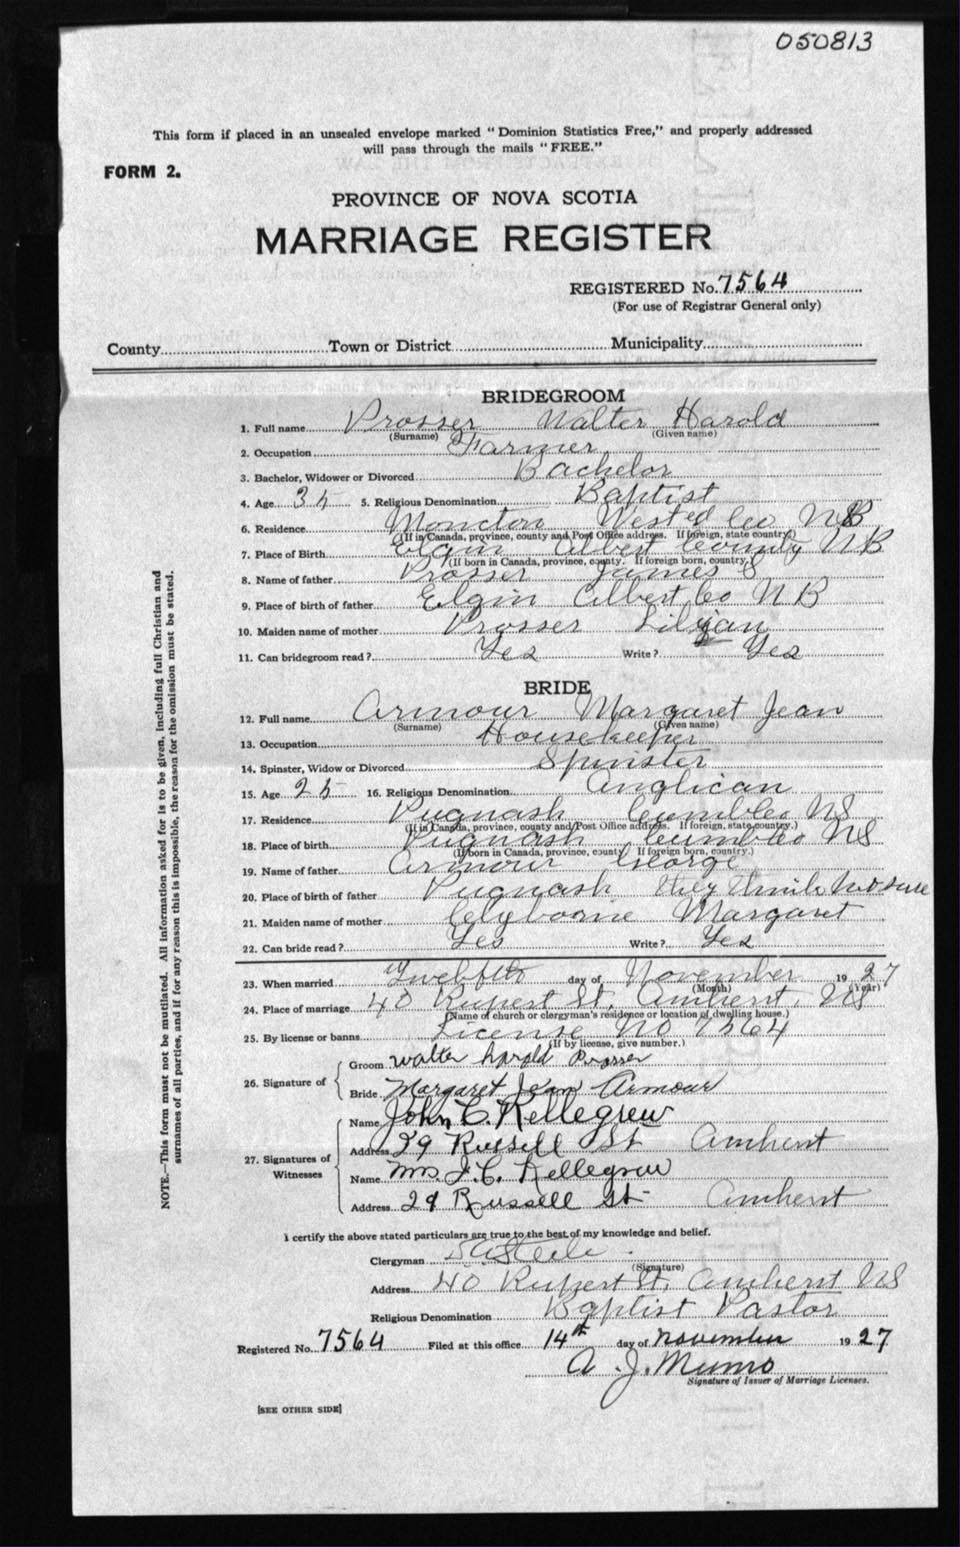 050813
This form if placed in an unsealed envelope marked "Dominion Statistics Free," and properly addressed
will pass through the mails "FREE."
FORM 2.
PROVINCE OF NOVA SCOTIA
MARRIAGE REGISTER
REGISTERED No. 7564
(For use of Registrar General only)
County Town or District Municipality
BRIDEGROOM
1. Full name Prosser Walter Harold
(Surname) (Given name)
2. Occupation Farmer
3. Bachelor, Widower or Divorced Bachelor
4. Age 35 5. Religious Denomination Baptist
6. Residence Moncton Westd Co NB
(If in Canada, province, county and Post Office address. If foreign, state country.)
7. Place of Birth Elgin Albert County NB
(If born in Canada, province, county. If foreign born, country.)
8. Name of father Prosser James S
9. Place of birth of father Elgin Albert Co NB
10. Maiden name of mother Prosser Lilian
11. Can bridegroom read? Yes Write? Yes
BRIDE
12. Full name Armour Margaret Jean
(Surname) (Given name)
13. Occupation Housekeeper
14. Spinster, Widow or Divorced Spinster
15. Age 25 16. Religious Denomination Anglican
17. Residence Pugwash Cumb Co NS
(If in Canada, province, county and Post Office address. If foreign, state country.)
18. Place of birth Pugwash Cumb Co NS
(If born in Canada, province, county. If foreign born, country.)
19. Name of father Armour George
20. Place of birth of father Pugwash they think not sure
21. Maiden name of mother Clyborne Margaret
22. Can bride read? Yes Write? Yes
23. When married Twelfth day of November 1927
(Month) (Year)
24. Place of marriage 40 Rupert St, Amherst, NS
(Name of church or clergyman's residence or location of dwelling house.)
25. By license or banns License No 7564
(If by license, give number.)
26. Signature of
Groom Walter Harold Prosser
Bride Margaret Jean Armour
27. Signatures of Witnesses
Name John C. Kellegrew
Address 29 Russell St Amherst
Name Mrs J. C. Kellegrew
Address 29 Russell St Amherst
I certify the above stated particulars are true to the best of my knowledge and belief.
Clergyman Steele
(Signature)
Address 40 Rupert St, Amherst NS
Religious Denomination Baptist Pastor
Registered No. 7564 Filed at this office 14th day of November 1927
A. J. Munro
Signature of Issuer of Marriage Licenses.
[SEE OTHER SIDE]
NOTE.—This form must not be mutilated. All information asked for is to be given, including full Christian and
surnames of all parties, and if for any reason this is impossible, the reason for the omission must be stated.